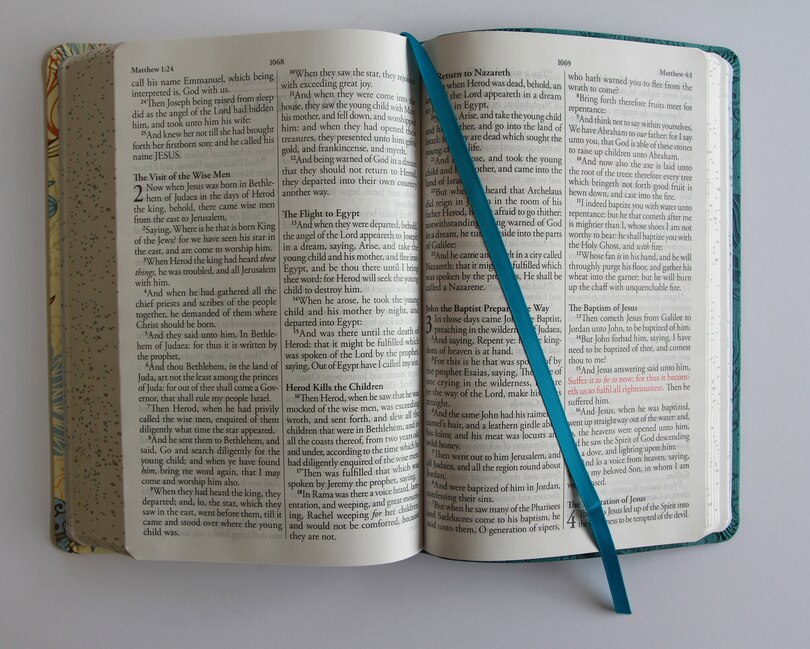 Matthew 1:24
1068
call his name Emmanuel, which being
interpreted is, God with us.
24Then Joseph being raised from sleep
did as the angel of the Lord had bidden
him, and took unto him his wife:
25And knew her not till she had brought
forth her firstborn son: and he called his
name JESUS.
The Visit of the Wise Men
2 Now when Jesus was born in Bethle-
hem of Judaea in the days of Herod
the king, behold, there came wise men
from the east to Jerusalem,
2Saying, Where is he that is born King
of the Jews? for we have seen his star in
the east, and are come to worship him.
3When Herod the king had heard these
things, he was troubled, and all Jerusalem
with him.
4And when he had gathered all the
chief priests and scribes of the people
together, he demanded of them where
Christ should be born.
5And they said unto him, In Bethle-
hem of Judaea: for thus it is written by
the prophet,
6And thou Bethlehem, in the land of
Juda, art not the least among the princes
of Juda: for out of thee shall come a Gov-
ernor, that shall rule my people Israel.
7Then Herod, when he had privily
called the wise men, enquired of them
diligently what time the star appeared.
8And he sent them to Bethlehem, and
said, Go and search diligently for the
young child; and when ye have found
him, bring me word again, that I may
come and worship him also.
9When they had heard the king, they
departed; and, lo, the star, which they
saw in the east, went before them, till it
came and stood over where the young
child was.
10When they saw the star, they rejoiced
with exceeding great joy.
11And when they were come into the
house, they saw the young child with Mary
his mother, and fell down, and worshipped
him: and when they had opened their
treasures, they presented unto him gifts;
gold, and frankincense, and myrrh.
12And being warned of God in a dream
that they should not return to Herod,
they departed into their own country
another way.
The Flight to Egypt
13And when they were departed, behold,
the angel of the Lord appeareth to Joseph
in a dream, saying, Arise, and take the
young child and his mother, and flee into
Egypt, and be thou there until I bring
thee word: for Herod will seek the young
child to destroy him.
14When he arose, he took the young
child and his mother by night, and
departed into Egypt:
15And was there until the death of
Herod: that it might be fulfilled which
was spoken of the Lord by the prophet,
saying, Out of Egypt have I called my son.
Herod Kills the Children
16Then Herod, when he saw that he was
mocked of the wise men, was exceeding
wroth, and sent forth, and slew all the
children that were in Bethlehem, and in
all the coasts thereof, from two years old
and under, according to the time which he
had diligently enquired of the wise men.
17Then was fulfilled that which was
spoken by Jeremy the prophet, saying,
18In Rama was there a voice heard, lam-
entation, and weeping, and great mourn-
ing, Rachel weeping for her children,
and would not be comforted, because
they are not.
1069
Matthew 4:1
Return to Nazareth
when Herod was dead, behold, an
of the Lord appeareth in a dream
in Egypt,
Arise, and take the young child
mother, and go into the land of
for they are dead which sought the
young life.
21And arose, and took the young
child and mother, and came into the
land of
22But heard that Archelaus
did reign in in the room of his
father Herod, afraid to go thither:
notwithstanding, warned of God
in a dream, he aside into the parts
of Galilee:
23And he came in a city called
Nazareth: that it might fulfilled which
was spoken by the He shall be
called a Nazarene.
John the Baptist Prepares the Way
3 In those days came the Baptist,
preaching in the wilderness Judaea,
And saying, Repent ye: for king-
dom of heaven is at hand.
For this is he that was of by
the prophet Esaias, saying, of
one crying in the wilderness,
ye the way of the Lord, make his
straight.
And the same John had his raiment
camel's hair, and a leathern girdle
his loins; and his meat was locusts
wild honey.
Then went out to him Jerusalem, and
all Judaea, and all the region round about
Jordan,
And were baptized of him in Jordan,
confessing their sins.
But when he saw many of the Pharisees
and Sadducees come to his baptism, he
said unto them, O generation of vipers,
who hath warned you to flee from the
wrath to come?
8Bring forth therefore fruits meet for
repentance:
9And think not to say within yourselves,
We have Abraham to our father: for I say
unto you, that God is able of these stones
to raise up children unto Abraham.
10And now also the axe is laid unto
the root of the trees: therefore every tree
which bringeth not forth good fruit is
hewn down, and cast into the fire.
11I indeed baptize you with water unto
repentance: but he that cometh after me
is mightier than I, whose shoes I am not
worthy to bear: he shall baptize you with
the Holy Ghost, and with fire:
12Whose fan is in his hand, and he will
throughly purge his floor, and gather his
wheat into the garner; but he will burn
up the chaff with unquenchable fire.
The Baptism of Jesus
13Then cometh Jesus from Galilee to
Jordan unto John, to be baptized of him.
14But John forbad him, saying, I have
need to be baptized of thee, and comest
thou to me?
15And Jesus answering said unto him,
Suffer it to be so now: for thus it becom-
eth us to fulfil all righteousness. Then he
suffered him.
16And Jesus, when he was baptized,
went up straightway out of the water: and,
lo, the heavens were opened unto him,
and he saw the Spirit of God descending
a dove, and lighting upon him:
and lo a voice from heaven, saying,
my beloved Son, in whom I am
pleased.
The of Jesus
4 Jesus led up of the Spirit into
to be tempted of the devil.